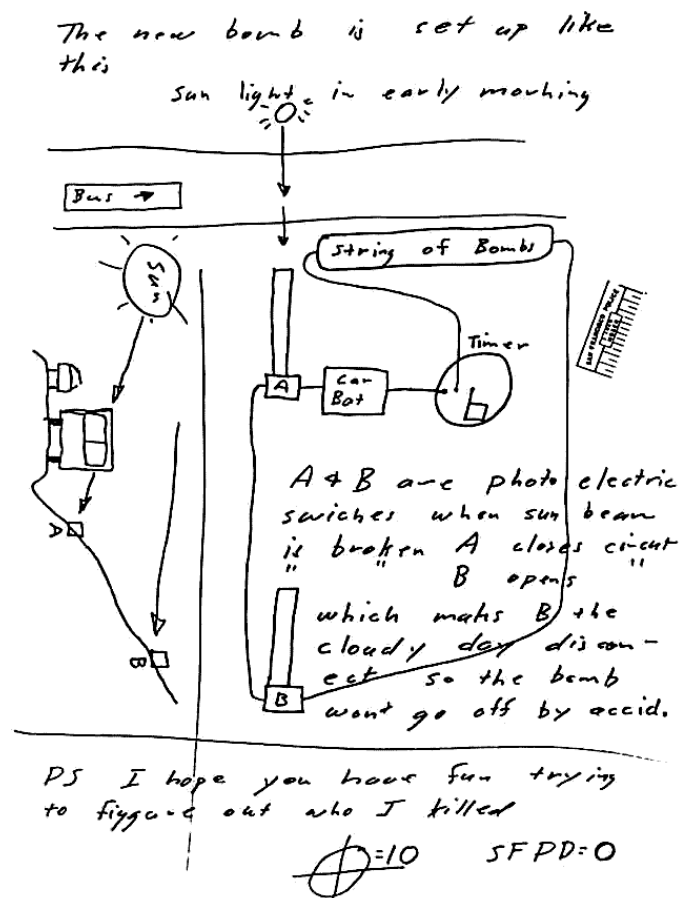 The new bomb is set up like
this
sun light in early morning
Bus
String of Bombs
Sun
SAN FRANCISCO POLICE
Timer
A
Car
Bat
A & B are photo electric
swiches when sun beam
is broken A closes circut
B opens
A
which maks B the
cloudy day discon-
B
ect so the bomb
B
wont go off by accid.
PS I hope you have fun trying
to figgure out who I killed
=10 SFPD=0